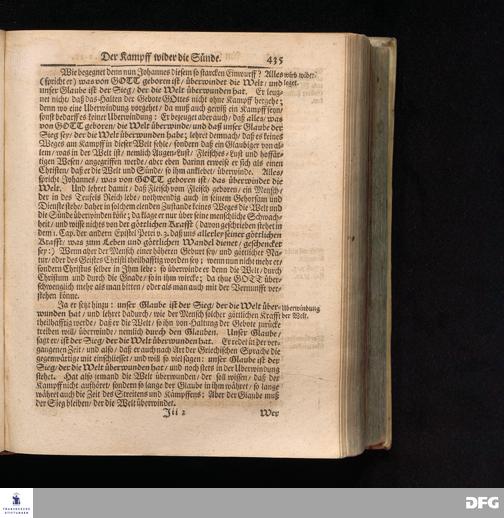 Der Kampff wider die Sünde. 435
Wie begegnet denn nun Johannes diesem so starcken Einwurff? Alles
(spricht er) was von GOTT geboren ist/ überwindet die Welt/ und
unser Glaube ist der Sieg/ der die Welt überwunden hat. Er leug-
net nicht/ daß das Halten der Gebote GOttes nicht ohne Kampff hergehe;
denn wo eine Uberwindung vorgehet/ da muß auch gewiß ein Kampff seyn/
sonst bedarff es keiner Uberwindung: Er bezeuget aber auch/ daß alles/ was
von GOTT geboren/ die Welt überwinde/ und daß unser Glaube der
Sieg sey/ der die Welt überwunden habe; lehret demnach/ daß es keines
Weges am Kampff in dieser Welt fehle/ sondern daß ein Glaubiger von al-
lem/ was in der Welt ist/ nemlich Augen-Lust/ Fleisches-Lust und hoffär-
tigen Wesen/ angegriffen werde/ aber eben darinn erweise er sich als einen
Christen/ daß er die Welt und Sünde/ so ihm anklebet/ überwinde. Alles/
spricht Johannes/ was von GOTT geboren ist/ das überwindet die
Welt. Und lehret damit/ daß Fleisch vom Fleisch geboren/ ein Mensch/
der in des Teufels Reich lebe/ nothwendig auch in seinem Gehorsam und
Dienste stehe/ daher in solchem elenden Zustande keines Weges die Welt und
die Sünde überwinden köñe; da klage er nur über seine menschliche Schwach-
heit/ und wisse nichts von der göttlichen Krafft (davon geschrieben stehet in
dem 1. Cap. der andern Epistel Petri v. 3. daß uns allerley seiner göttlichen
Krafft/ was zum Leben und göttlichen Wandel dienet/ geschencket
sey:) Wenn aber der Mensch einer höheren Geburt sey/ und göttlicher Na-
tur/ oder des Geistes Christi theilhafftig worden sey; wenn nun nicht mehr er/
sondern Christus selber in Ihm lebe: so überwinde er denn die Welt/ durch
Christum und durch die Gnade/ so in ihm wircke; da thue GOTT über-
schwenglich mehr als man bitten/ oder als man auch mit der Vernunfft ver-
stehen könne.
Ja er setzt hinzu: unser Glaube ist der Sieg/ der die Welt über-
wunden hat/ und lehret dadurch/ wie der Mensch solcher göttlichen Krafft
theilhafftig werde/ daß er die Welt/ so ihn von Haltung der Gebote zurücke
treiben will/ überwinde/ nemlich durch den Glauben. Unser Glaube/
sagt er/ ist der Sieg/ der die Welt überwunden hat. Er redet in der ver-
gangenen Zeit/ und also/ daß er auch nach Art der Griechischen Sprache die
gegenwärtige mit einschliesset/ und will so viel sagen: unser Glaube ist der
Sieg/ der die Welt überwunden hat/ und noch stets in der Uberwindung
stehet. Hat also iemand die Welt überwunden/ der soll wissen/ daß der
Kampff nicht aufhöret/ sondern so lange der Glaube in ihm währet/ so lange
währet auch die Zeit des Streitens und Kämpffens: Aber der Glaube muß
der Sieg bleiben/ der die Welt überwindet.
Jii 2 Wer
wird wider-
leget.
Uberwindung
der Welt.
FRANCKESCHE
STIFTUNGEN
DFG